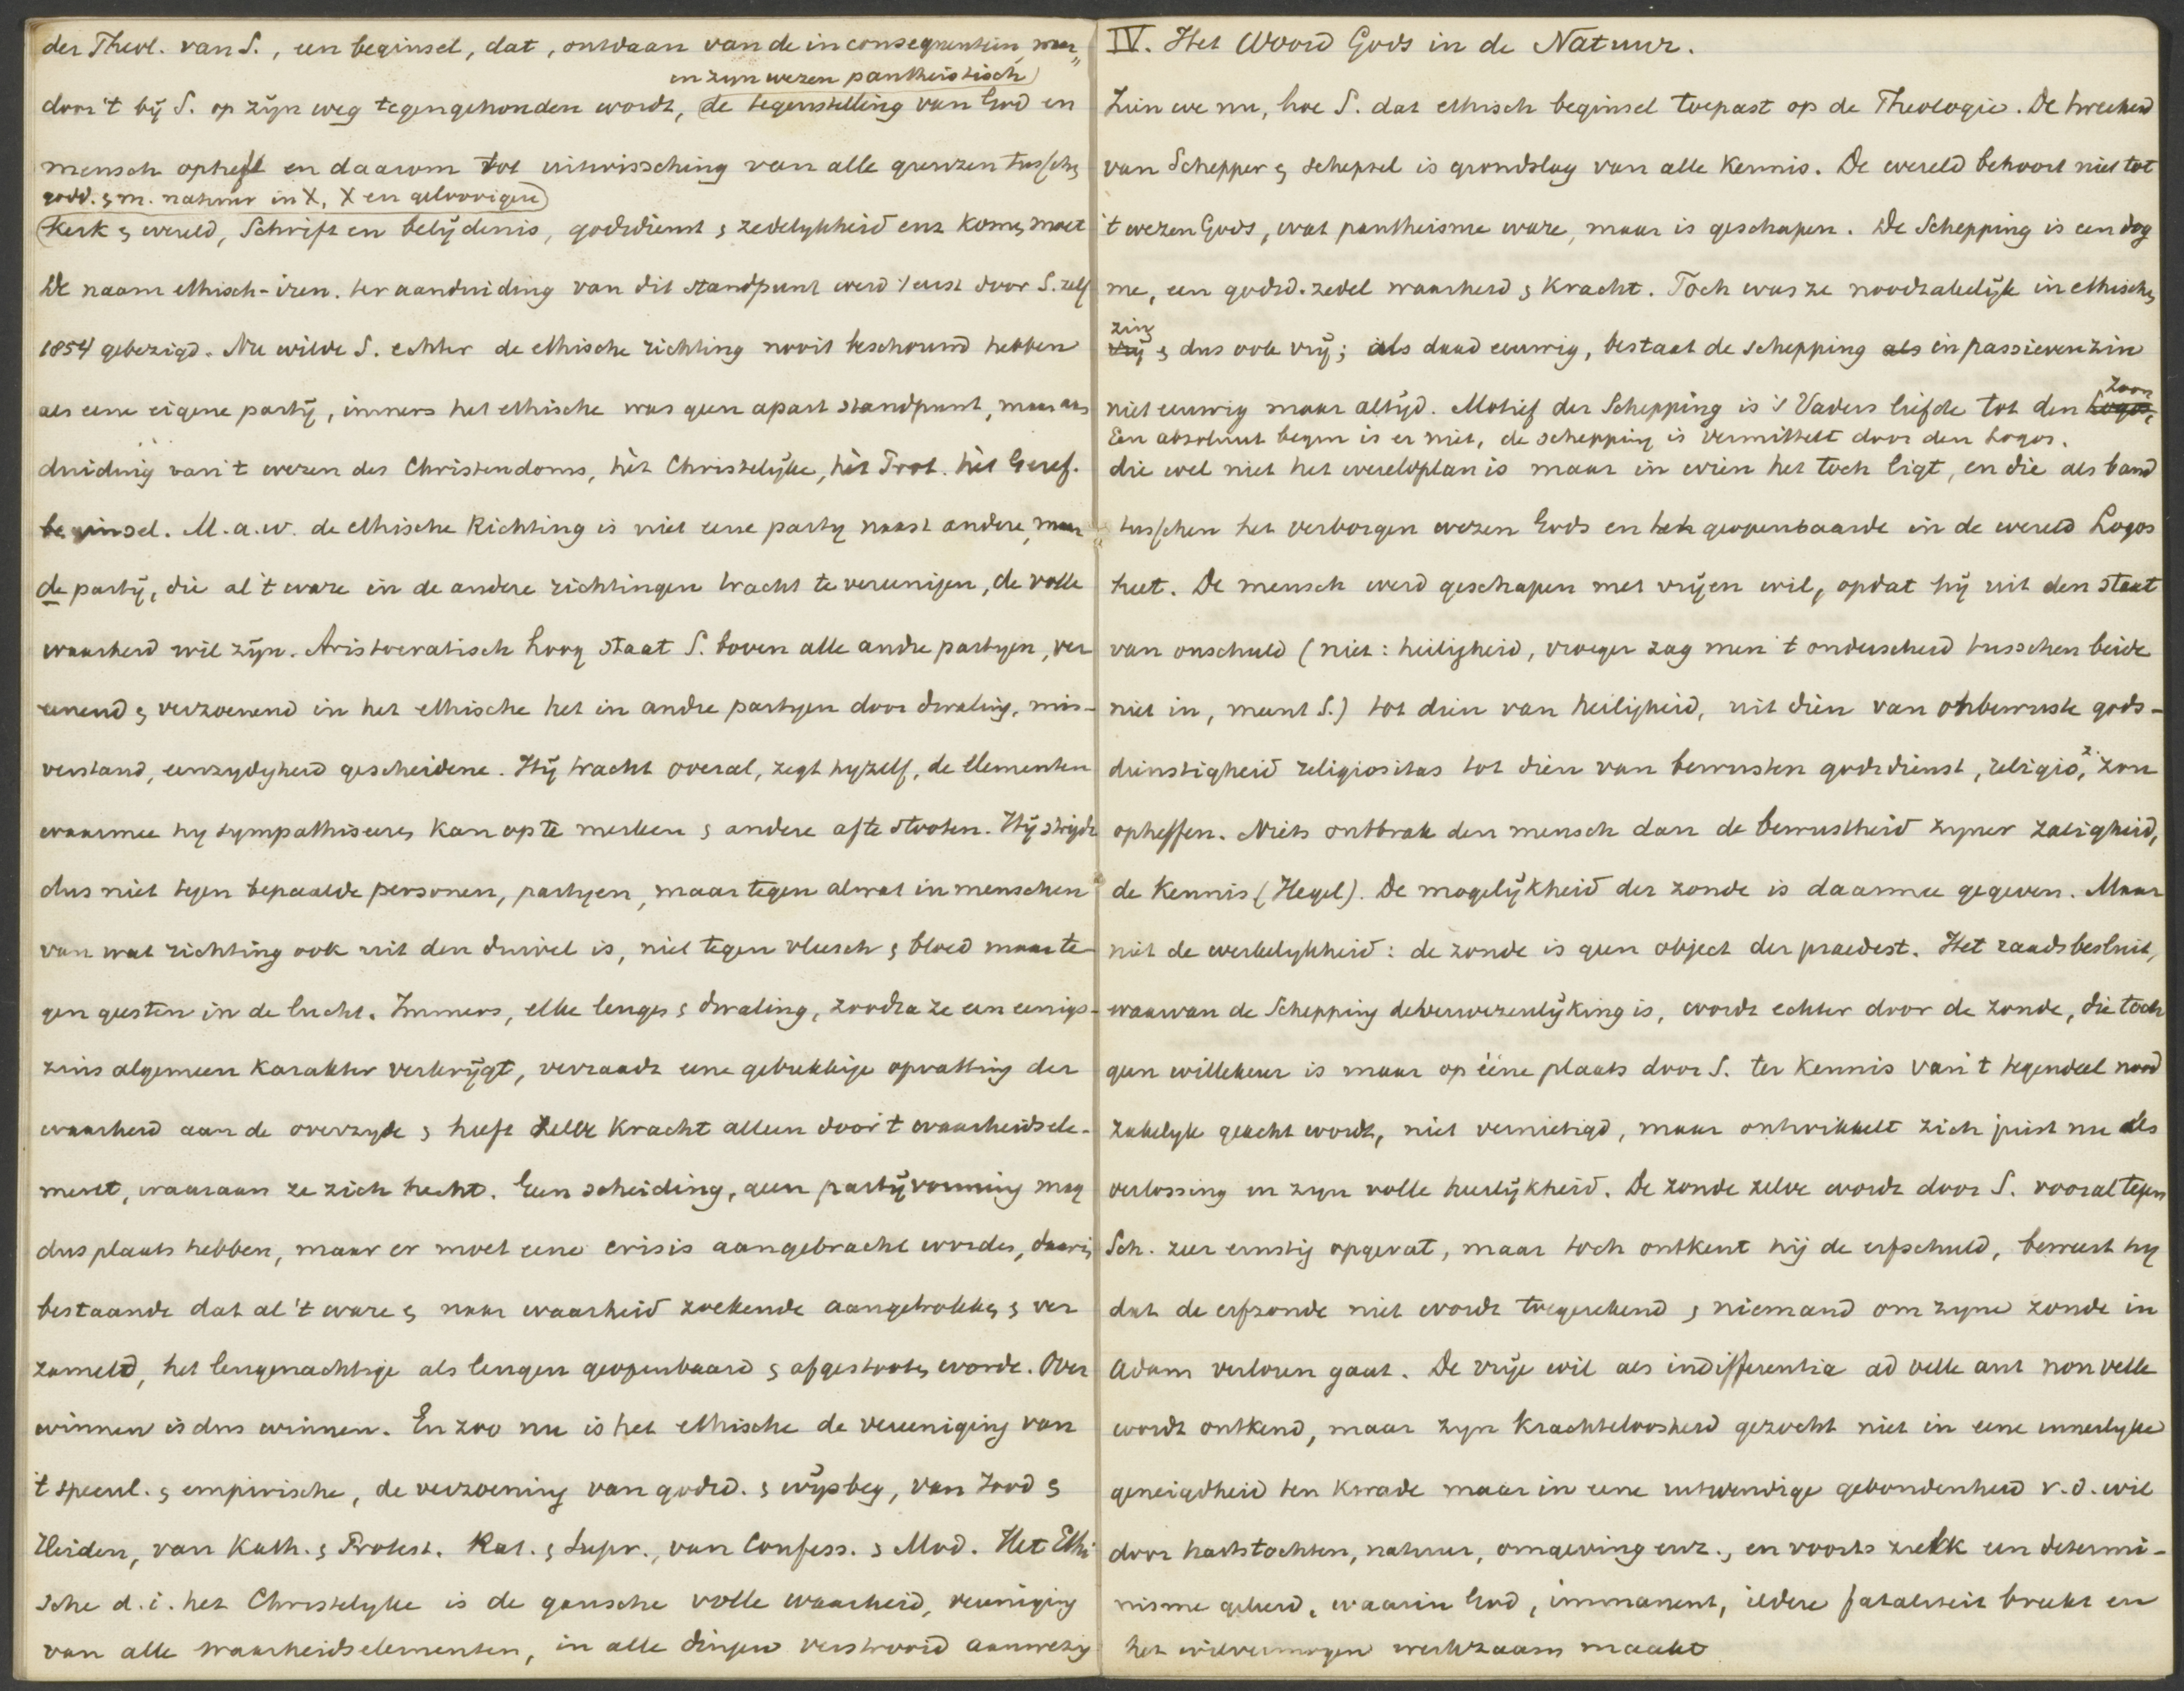 der Theol. van S., een beginsel, dat, ontdaan van de inconsequentiën, waar„
en zyn wezen pantheistisch)
door 't bij S. op zijn weg tegengehouden wordt, (de tegenstelling van God en
mensch opheft en daarom tot uitwissching van alle grenzen tusschen
godd. & m. natuur in X, X en geloovigen)
(Kerk & wereld, Schrift en belijdenis, godsdienst & zedelykheid enz komen moet
De naam ethisch-iren. ter aanduiding van dit standpunt werd 't eerst door S. zelf
1854 gebezigd. Nu wilde S. echter de ethische richting nooit beschouwd hebben
als eene eigene partij, immers het ethische was geen apart standpunt, maar aan
duiding van 't wezen des Christendoms, hèt Christelijke, hèt Prot. hèt Geref.
beginsel. M.a.w. de ethische Richting is niet eene party naast andere, maar
de partij, die al 't ware in de andere richtingen tracht te vereenigen, de volle
waarheid wil zijn. Aristocratisch hoog staat S. boven alle andre partyen, ver
eenend & verzoenend in het ethische het in andre partyen door dwaling, mis-
verstand, eenzydigheid gescheidene. Hij tracht overal, zegt hyzelf, de elementen
waarmee hy sympathiseeren kan op te merken & andere af te stooten. Hij strijdt
dus niet tegen bepaalde personen, partyen, maar tegen alwat in menschen
van wat richting ook uit den duivel is, niet tegen vleesch & bloed maar te-
gen geesten in de lucht. Immers, elke leugen & dwaling, zoodra ze een eenigs-
zins algemeen karakter verkrijgt, verraadt eene gebrekkige opvatting der
waarheid aan de overzyde & heeft zelve kracht alleen door 't waarheidsele-
ment, waaraan ze zich hecht. Geen scheiding, geen partijvorming mag
dus plaats hebben, maar er moet eene crisis aangebracht worden, daarin
bestaande dat al 't ware & naar waarheid zoekende aangetrokken & ver
zameld, het leugenachtige als leugen geopenbaard & afgestooten worde. Over
winnen is dus winnen. En zoo nu is het ethische de vereeniging van
't specul. & empirische, de verzoening van godsd. & wijsbeg, van Jood &
Heiden, van Kath. & Protest. Rat. & Supr., van Confess. & Mod. Het Ethi
sche d.i. het Christelyke is de gansche volle waarheid, vereeniging
van alle waarheidselementen, in alle dingen verstrooid aanwezig
IV. Het Woord Gods in de Natuur.
Zien we nu, hoe S. dat ethisch beginsel toepast op de Theologie. De tweeheid
van Schepper & schepsel is grondslag van alle Kennis. De wereld behoort niet tot
't wezen Gods, wat pantheisme ware, maar is geschapen. De Schepping is een dog
me, een godsd. zedel waarheid & Kracht. Toch was ze noodzakelijk in ethischen
zin
vrij & dus ook vrij; als daad eeuwig, bestaat de schepping als in passieven zin
niet eeuwig maar altijd. Motief der Schepping is 's Vaders liefde tot den Logos, Zoon
Een absoluut begin is er niet, de schepping is vermittelt door den Logos.
die wel niet het wereldplan is maar in wien het toch ligt, en die als band
tusschen het verborgen wezen Gods en het geopenbaarde in de wereld Logos
heet. De mensch werd geschapen met vrijen wil, opdat hij uit den staat
van onschuld (niet: heiligheid, vroeger zag men 't onderscheid tusschen beide
niet in, meent S.) tot dien van heiligheid, uit dien van onbewuste gods-
dienstigheid religiositas tot dien van bewusten godsdienst, religio, z. zou
opheffen. Niets ontbrak den mensch dan de bewustheid zyner zaligheid,
de Kennis (Hegel). De mogelijkheid der zonde is daarmee gegeven. Maar
niet de werkelykheid: de zonde is geen object der praedest. Het raadsbesluit,
waarvan de Schepping de verwezenlijking is, wordt echter door de zonde, die toch
geen willekeur is maar op ééne plaats door S. ter Kennis van 't tegendeel nood
zakelyk geacht wordt, niet vernietigd, maar ontwikkelt zich juist nu als
verlossing in zyn volle heerlijkheid. De zonde zelve wordt door S. vooral tegen
Sch. zeer ernstig opgevat, maar toch ontkent hij de erfschuld, beweert hy
dat de erfzonde niet wordt toegerekend & niemand om zyne zonde in
Adam verloren gaat. De vrije wil als indifferentia ad velle aut non velle
wordt ontkend, maar zyn Krachteloosheid gezocht niet in eene innerlyke
geneigdheid ten kwade maar in eene uitwendige gebondenheid v.d. wil
door hartstochten, natuur, omgeving enz., en voorts een determi-
nisme geleerd, waarin God, immanent, iedere fataliteit breekt en
het wilvermogen werkzaam maakt